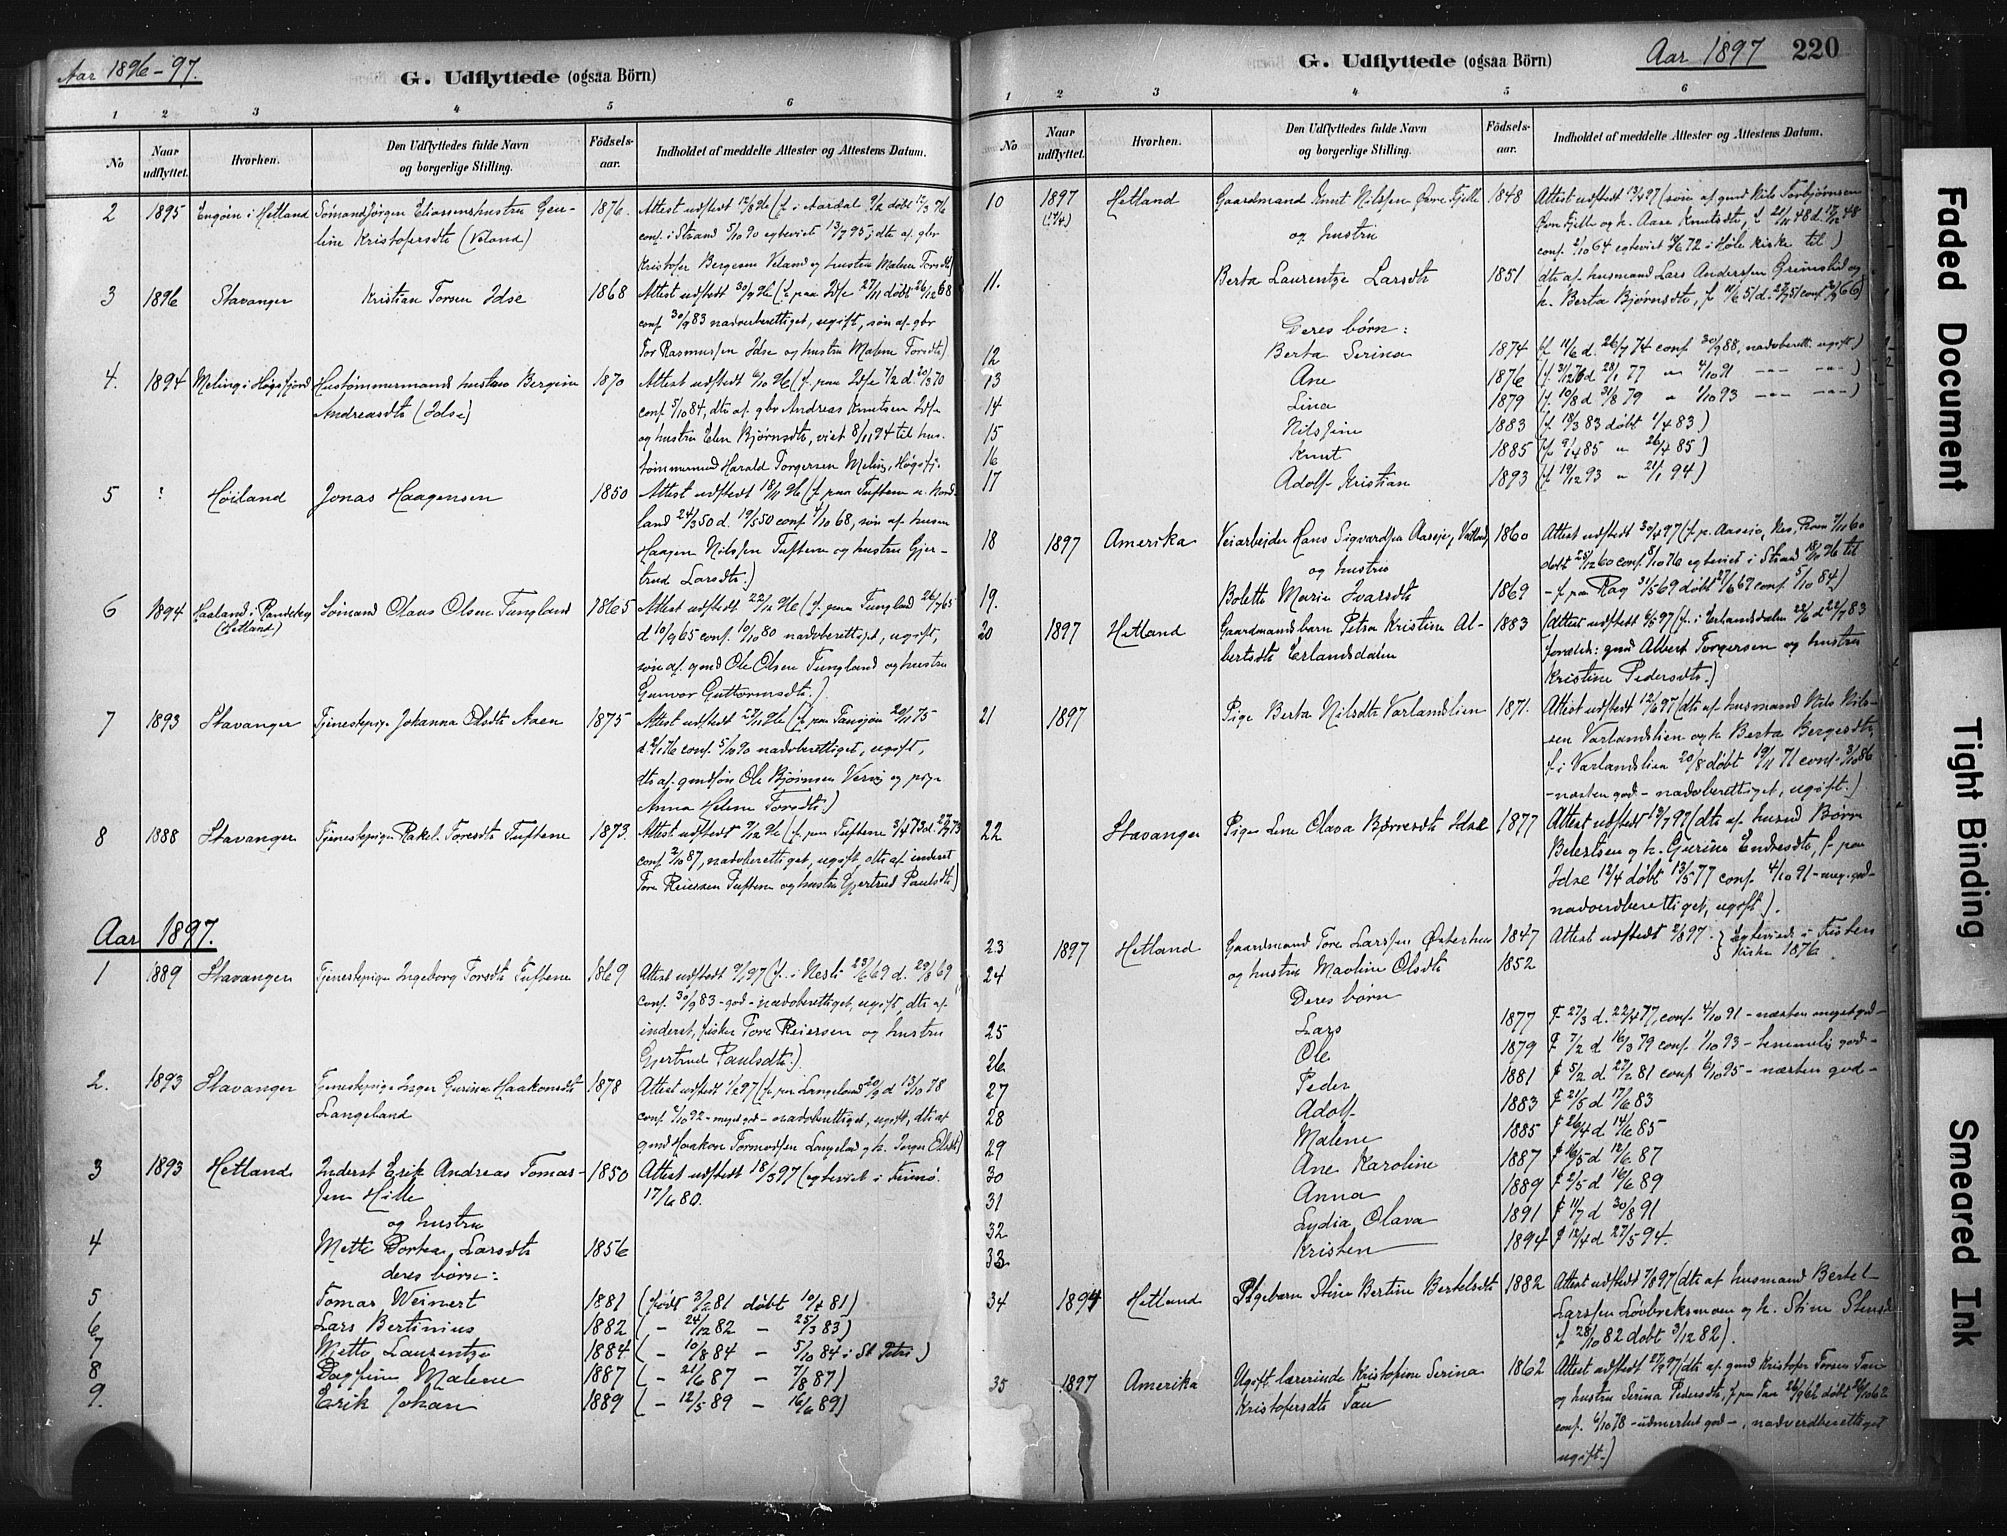 Aar 1896-97.
G. Udflyttede (ogsaa Börn)
1 2 3 4 5 6
No
Naar udflyttet.
Hvorhen.
Den Udflyttedes fulde Navn og borgerlige Stilling.
Födsels-aar.
Indholdet af meddelte Attester og Attestens Datum.
2 1895 Engøen i Hetland Sømand Jørgen Eliassens hustru Gee- 1876. Attest udstedt 12/8 96 (f. i Aardal 9/2 døbt 12/3 76
line Kristofersdtr (Veland) conf. i Strand 5/10 90 egteviet 13/7 95; dtr af gbr
Kristofer Bergesen Veland og hustru Malene Toresdtr)
3 1896 Stavanger Kristian Torsen Idse 1868 Attest udstedt 30/9 96 (f. paa Idse 27/11 døbt 26/12 68
conf. 30/9 83 nadverberettiget, ugift, søn af gbr
Tor Rasmussen Idse og hustru Malene Toresdtr)
4. 1894 Meling i Høgsfjord Hustømmermands hustru Bergine 1870 Attest udstedt 6/10 96 (f. paa Idse 7/2 d. 20/3 70
Andreasdtr (Idse) conf. 5/10 84, dtr af gbr Andreas Knutsen Idse
og hustru Elen Bjørnsdtr, viet 8/11 94 til hus-
tømmermand Harald Torgersen Meling, Høgsfj.
5 ? Høiland Jonas Haagensen 1850 Attest udstedt 18/11 96 (f. paa Tuftene u. Nord-
land 24/3 50 d. 19/5 50 conf. 4/10 68, søn af husm
Haagen Nilssen Tuftene og hustru Gjer-
trud Larsdtr.)
6 1894 Haaland i Randeberg Sømand Olaus Olsen Tungland 1865 Attest udstedt 22/12 96 (f. paa Tungland 26/7 65
(Hetland) d 10/9 65 conf. 10/10 80 nadverberettiget, ugift,
søn af gmd Ole Olsen Tungland og hustru
Gunvor Guttormsdtr.)
7 1893 Stavanger Tjenestepige Johanna Olsdtr Aasen 1875 Attest udstedt 27/11 96 (f. paa Tausjøen 20/11 75
d. 2/1 76 conf. 5/10 90 nadverberettiget, ugift,
dtr af gmdsøn Ole Bjørnsen Vervig og pige
Anna Helene Toresdtr.)
8 1888 Stavanger Tjenestepige Rakel Toresdtr Tuftene 1873. Attest udstedt 9/12 96 (f. paa Tuftene 3/4 73 d. 27/4 73
conf. 2/10 87, nadverberettiget, ugift, dtr af inderst
Tore Reiersen Tuftene og hustru Gjertrud Paulsdtr)
Aar 1897.
1 1889 Stavanger Tjenestepige Ingeborg Toresdtr Tuftene 1869 Attest udstedt 9/1 97 (f. i Nesli 23/6 69 d. 29/8 69
conf. 30/9 83 -god- nadverberettiget, ugift, dtr af
inderst, fisker Tore Reiersen og hustru
Gjertrud Paulsdtr.)
2. 1893 Stavanger Tjenestepige Inger Gurine Haakonsdtr 1878 Attest udstedt 1/2 97 (f. paa Langeland 20/9 d 13/10 78
Langeland conf. 2/10 92 -meget god- nadverberettiget, ugift, dtr af
gmd Haakon Tormodsen Langeland og h. Inger Elisdtr)
3 1893 Hetland Inderst Erik Andreas Tomas- 1850 Attest udstedt 18/3 97 (egteviet i Finnø.
sen Hille 17/6 80.
og hustru
4 Mette Dortea Larsdtr 1856
deres børn:
5 Tomas Weinert 1881 (født 3/2 81 døbt 10/4 81)
6 Lars Bertinius 1882 (- 24/12 82 - 25/3 83)
7 Mette Laurentze 1884 (- 10/8 84 - 5/10 84 i St Petri)
8 Dagfine Malene 1887 (- 21/6 87 - 7/8 87)
9. Erik Johan 1889 (- 12/5 89 - 16/6 89)
Aar 1897 220
G. Udflyttede (ogsaa Börn)
1 2 3 4 5 6
No
Naar udflyttet.
Hvorhen.
Den Udflyttedes fulde Navn og borgerlige Stilling.
Födsels-aar.
Indholdet af meddelte Attester og Attestens Datum.
10 1897 Hetland Gaardmand Knut Nilssen Øvre Fjelle 1848 Attest udstedt 13/4 97 (søn af gmd Nils Torbjørnsen
(14/4) og hustru Øvre Fjelle og h. Aase Knutsdtr, f. 21/11 48 d. 17/12 48
conf. 2/10 64 egteviet 72 i Høle kirke til)
11. Berta Laurentze Larsdtr 1851 dtr af husmand Lars Anderssen Grimslid og
h. Berta Bjørnsdtr, f 11/6 51 d. 27/7 51 conf. 66)
Deres børn:
12 Berta Serina 1874 (f 11/6 d. 26/7 74 conf 30/9 88, nadvberett. ugift)
13 Ane 1876 (f. 3/12 76 d 28/1 77 " 4/10 91 -"- -"-)
14 Lina 1879 (f. 10/8 d 31/8 79 " 1/10 93 -"- -"-)
15 Nilssine 1883 (f. 18/3 83 døbt 1/4 83)
16 Knut 1885 (f. 9/4 85 " 26/4 85)
17 Adolf Kristian 1893 (f 19/12 93 " 21/1 94)
18 1897 Amerika Veiarbejder Hans Sigvardsen Aaseje, Vatland, 1860 Attest udstedt 30/4 97 (f. p. Aaseie, Nes, Roen 7/11 60
og hustru døbt 25/12 60 conf. 8/10 76 egteviet i Strand 18/10 96 til
19. Bolette Marie Ivarsdtr 1869 - f. paa Rag 31/5 69 døbt 27/6 69 conf. 5/10 84)
20 1897 Hetland Gaardmandsbarn Petra Kristine Al- 1883 (Attest udstedt 6/5 97 (f. i Erlandsdalen 22/6 d 22/7 83
bertsdtr Erlandsdalen forældr: gmd Albert Torgersen og hustru
Kristine Pedersdtr.)
21 1897 Pige Berta Nilsdtr Varlandslien 1871. Attest udstedt 12/6 97 (dtr af husmand Nils Nils-
sen Varlandslien og h Berta Bergesdtr,
f. i Varlandslien 20/8 døbt 19/11 71 conf. 3/10 86
-næsten god- nadverberettiget, ugift.)
22 Stavanger Pige Lene Olava Bjørnsdtr Idse 1877 Attest udstedt 19/7 97 (dtr af husmd Børn
Belestsen og h. Gurine Endresdtr, f. paa
Idse 12/4 døbt 13/5 77 conf. 4/10 91 -meg. god-
nadverdberettiget, ugift.)
23 1897 Hetland Gaardmand Tore Larssen Østerhus 1847 Attest udstedt 2/8 97. } Egteviede i Fisters
24 og hustru Maoline Olsdtr 1852 kirke 1876.
Deres børn
25 Lars 1877 F 27/3 d. 22/4 77, conf. 4/10 91 -næsten meget god-
26 Ole 1879 F 7/2 d 16/3 79 conf. 1/10 93 -temmelig god-
27 Peder 1881 F 5/2 d. 27/2 81 conf 6/10 95 -næsten god-
28 Adolf 1883 F 21/5 d 17/6 83
29 Malene 1885 F 26/4 d. 14/6 85
30 Ane Karoline 1887 F 16/5 d 12/6 87
31 Anna 1889 F 2/5 d 16/6 89
32 Lydia Olava 1891 F 11/7 d 30/8 91
33 Kristen 1894 F 12/4 d 27/5 94.
34 1894 Hetland Plejebarn Stina Bertine Bertelsdtr 1882 Attest udstedt 7/8 97 (dtr af husmand Bertel
Larssen Løvbreksmoen og h. Stine Stensdtr
f. 28/10 82 døbt 3/12 82).
35 1897 Amerika Ugift lærerinde Kristofine Serina 1862 Attest udstedt 27/9 97 (dtr af gmd Kristofer Torsen Tau
Kristofersdtr Tau og hustru Serina Pedersdtr, f. paa Tau 26/9 62 døbt 26/10 62
conf. 6/10 78 -udmerket god-, nadverdberettiget
ugift.)
Faded Document
Tight Binding
Smeared Ink